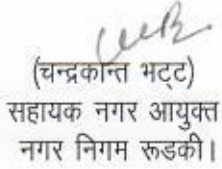 (चन्द्रकान्त भट्ट)
सहायक नगर आयुक्त
नगर निगम रूडकी।